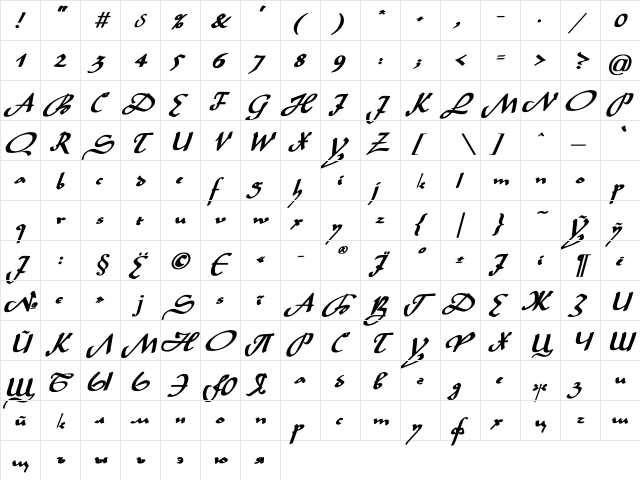 ! " # $ % & ' ( ) * + , - . / 0
1 2 3 4 5 6 7 8 9 : ; < = > ? @
A B C D E F G H I J K L M N O P
Q R S T U V W X Y Z [ \ ] ^ _ `
a b c d e f g h i j k l m n o p
q r s t u v w x y z { | } ~ Ў ў
J : § Ё © Є « - ® Ї ° ± І і ¶ ё
№ є » j S s ї А Б В Г Д Е Ж З И
Й К Л М Н О П Р С Т У Ф Х Ц Ч Ш
Щ Ъ Ы Ь Э Ю Я а б в г д е ж з и
й к л м н о п р с т у ф х ц ч ш
щ ъ ы ь э ю я